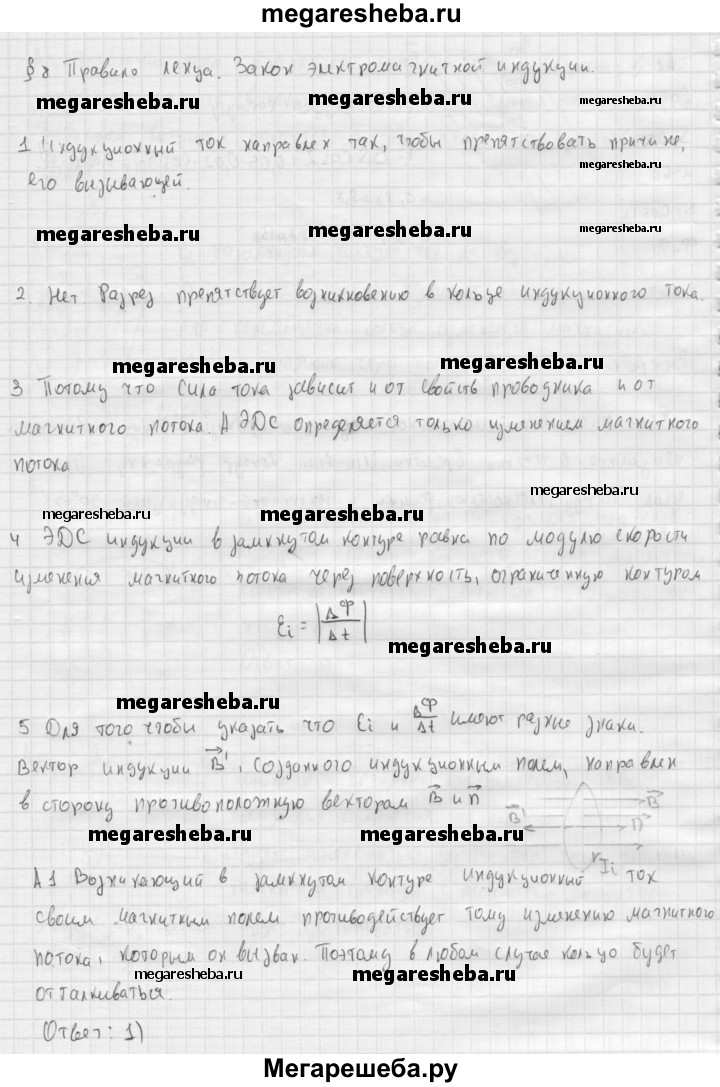 megaresheba.ru
§ 8 Правило Ленца. Закон электромагнитной индукции.
megaresheba.ru megaresheba.ru megaresheba.ru
1 Индукционный ток направлен так, чтобы препятствовать причине,
megaresheba.ru
его вызывающей.
megaresheba.ru megaresheba.ru megaresheba.ru
2. Нет Разрез препятствует возникновению в кольце индукционного тока.
megaresheba.ru megaresheba.ru
3 Потому что сила тока зависит и от свойств проводника и от
магнитного потока. А ЭДС определяется только изменением магнитного
потока
megaresheba.ru
megaresheba.ru megaresheba.ru megaresheba.ru
4 ЭДС индукции в замкнутом контуре равна по модулю скорости
изменения магнитного потока через поверхность, ограниченную контуром
Ɛi = |ΔФ/Δt|
megaresheba.ru
megaresheba.ru
5 Для того чтобы указать что Ɛi и ΔФ/Δt имеют разные знаки.
Вектор индукции B⃗', созданного индукционным полем, направлен
в сторону противоположную векторам B⃗ и n⃗
B⃗' B⃗ n⃗ Ii
megaresheba.ru megaresheba.ru
А1 Возникающий в замкнутом контуре индукционный ток
своим магнитным полем противодействует тому изменению магнитного
потока, которым он вызван. Поэтому в любом случае кольцо будет
megaresheba.ru megaresheba.ru
отталкиваться.
Ответ: 1)
Мегарешеба.ру